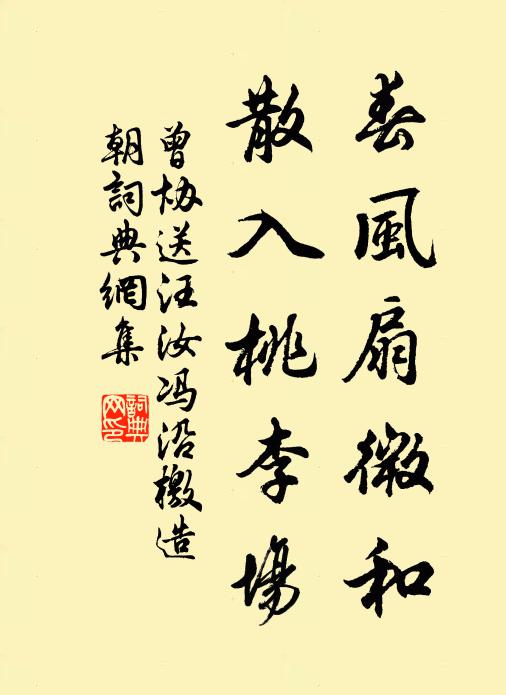 春風扇微和
散入桃李場
曾协送汪汝冯沿檄造
朝詞典網集
詞典網印